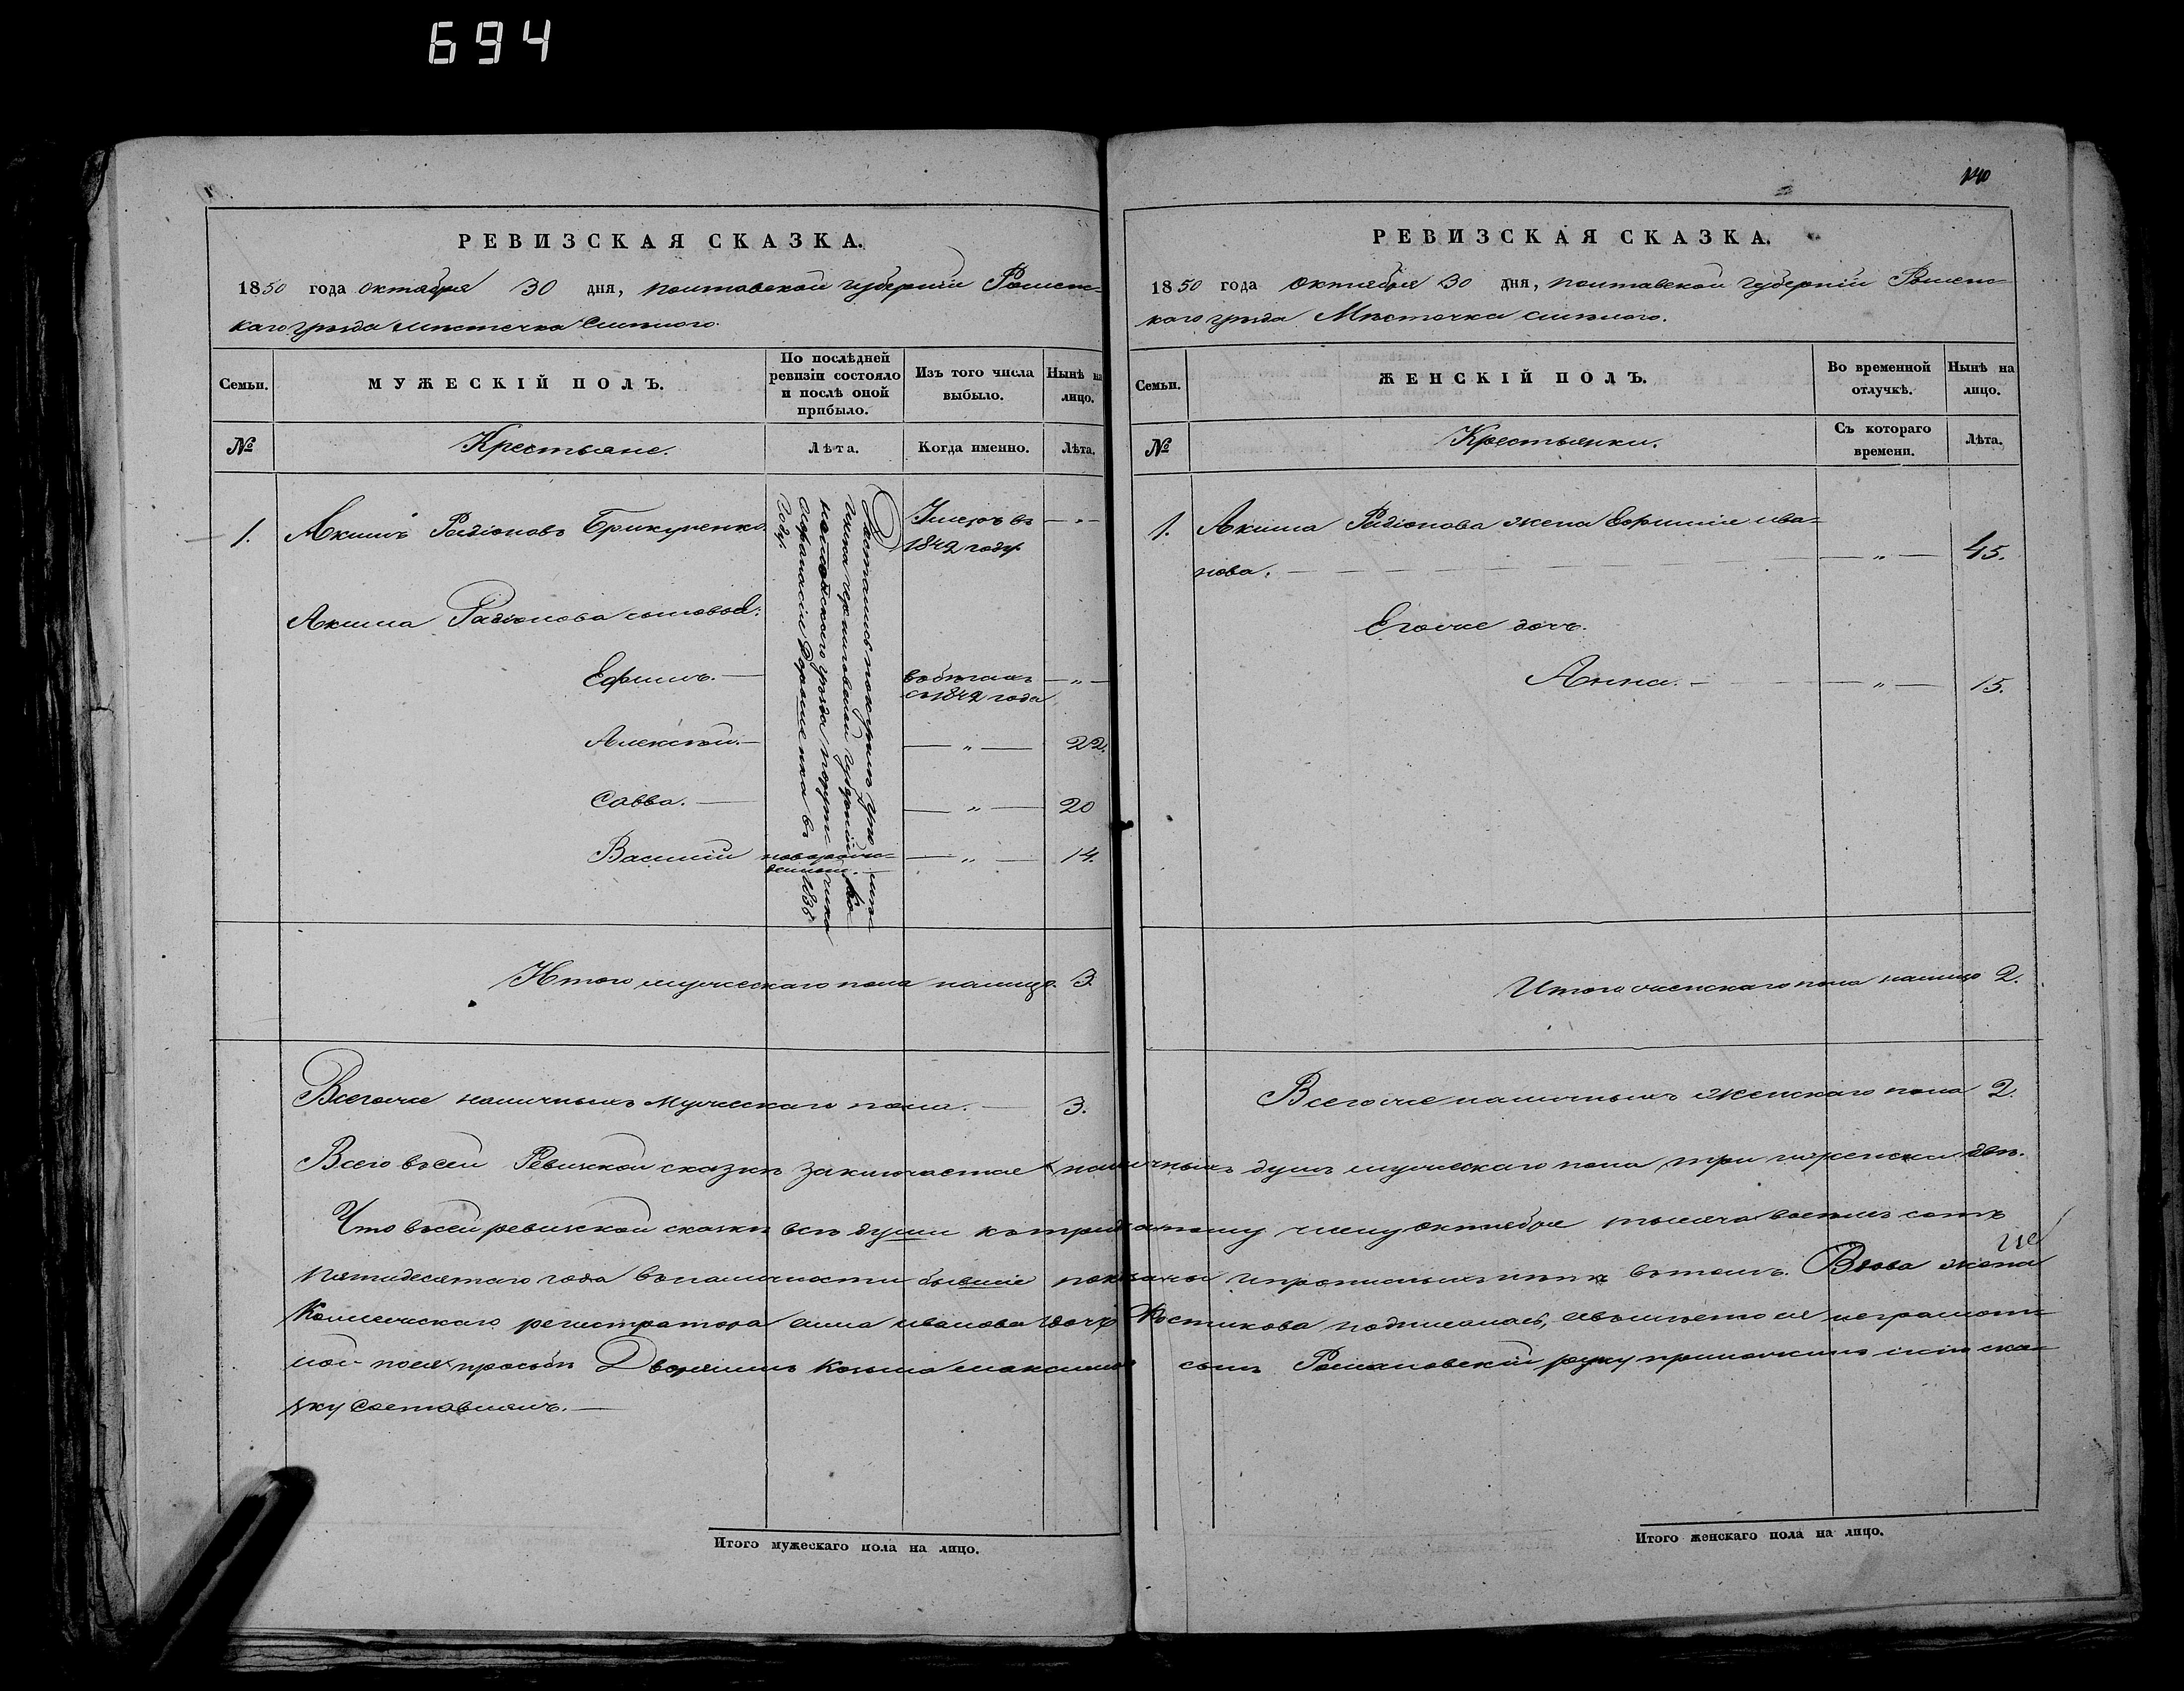 694
РЕВИЗСКАЯ СКАЗКА.
1850 года октября 30 дня, полтавской губерніи Роменс-
каго уѣзда мѣстечка Смѣлого.
Семьи.
МУЖЕСКІЙ ПОЛЪ.
По послѣдней ревизіи состояло и послѣ оной прибыло.
Изъ того числа выбыло.
Нынѣ на лицо.
№
Крестьяне.
Лѣта.
Когда именно.
Лѣта.
1. Акимъ Радіоновъ
Умеръ въ 1842 году
— „ —
Акима Радіонова сыновья:
Ефимъ. —
въ бѣгахъ съ 1842 года
— „ —
Алексѣй. — — „ — 22.
Савва. — — „ — 20
Василій новорож-
денный. — „ — 14.
Достались покупкѣ
черниговской губерніи
уѣзда поручика
въ 1835
году.
Итого мужескаго пола налицо. 3.
Всего же наличныхъ мужескаго пола. — 3.
140
РЕВИЗСКАЯ СКАЗКА.
1850 года октября 30 дня, полтавской губерніи Роменс-
каго уѣзда Мѣстечка смѣлого.
Семьи.
ЖЕНСКІЙ ПОЛЪ.
Во временной отлучкѣ.
Нынѣ на лицо.
№
Крестьянки.
Съ котораго времени.
Лѣта.
1. Акима Радіонова жена Ефимія ива-
нова. — „ — 45.
Его же дочь.
Анна. — — „ — 15.
Итого женскаго пола налицо 2.
Всего же наличныхъ женскаго пола 2.
Всего въ сей Ревизкой сказкѣ заключается наличныхъ душъ мужескаго пола три и женска двѣ.
Что въ сей ревизкой сказкѣ всѣ души къ тридцатому числу октября тысяча восемь сотъ
пятидесятаго года въ наличности бывшіе показаны и прописныхъ нѣтъ въ томъ. Вдова жена
Коллежскаго регистратора анна иванова дочь Костикова подписалась, а вмѣсто ея неграмот-
ной по ея прозьбѣ Дворянинъ Козьма максимовъ сынъ Романовскій руку приложилъ и сію ска-
зку составлялъ. —
Итого мужескаго пола на лицо.
Итого женскаго пола на лицо.